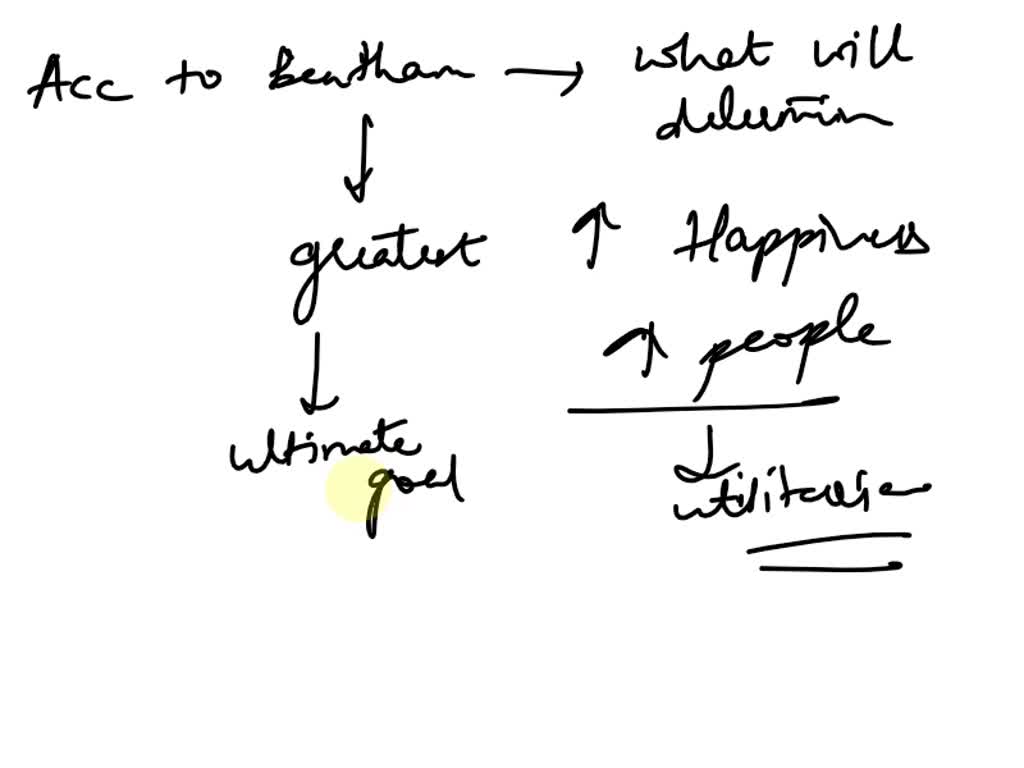 Acc to Bentham → what will
determin
greatest ↑ Happiness
↑ people
ultimate
goal
utilitarian